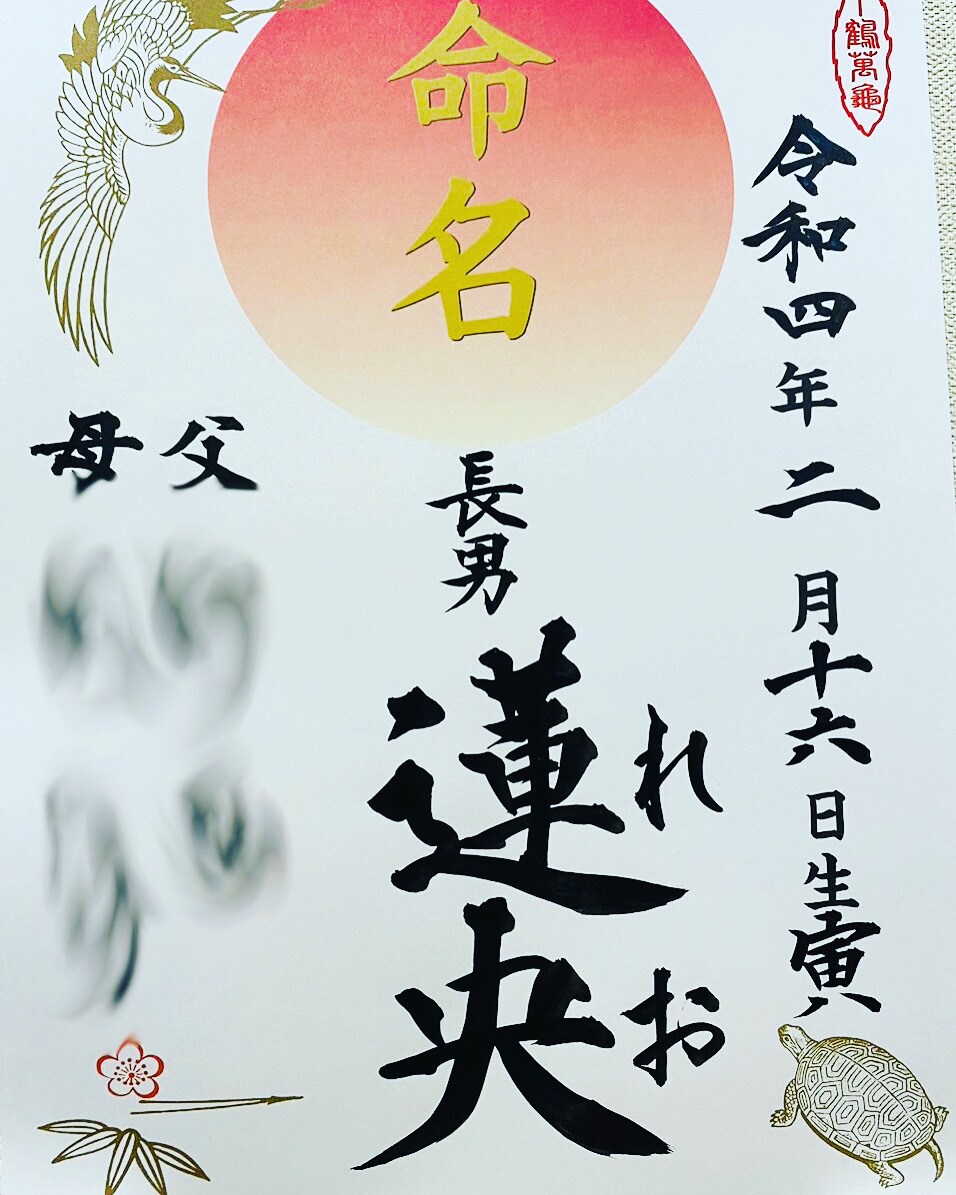 命名
鶴萬龜
令和四年二月十六日生寅
れお
長男蓮央
父
母